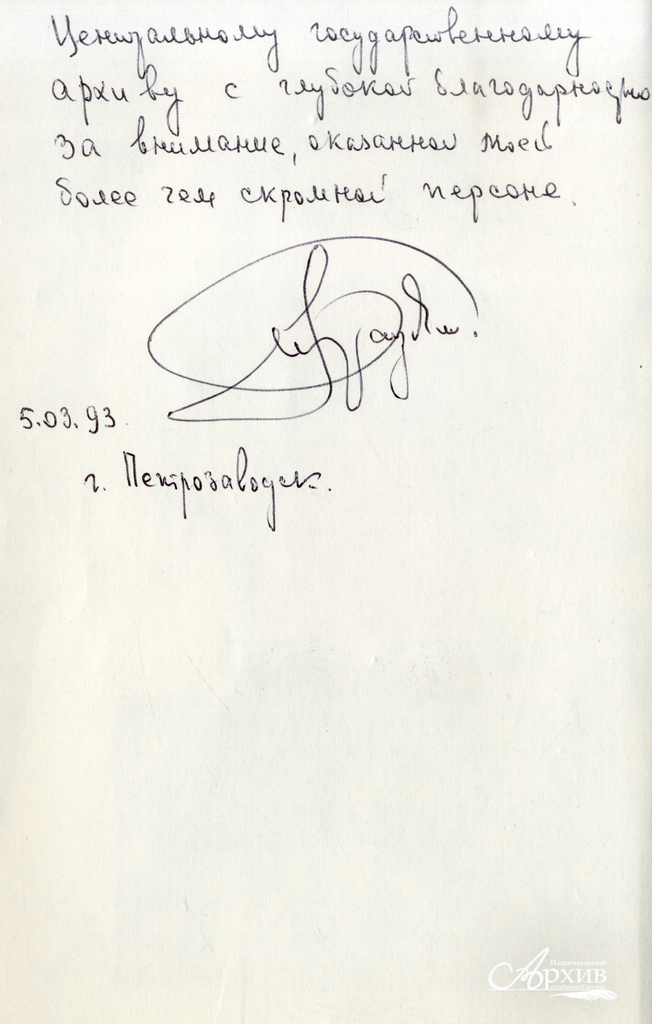 Центральному государственному
архиву с глубокой благодарностью
за внимание, оказанное моей
более чем скромной персоне.
5.03.93.
г. Петрозаводск.
Национальный
Архив